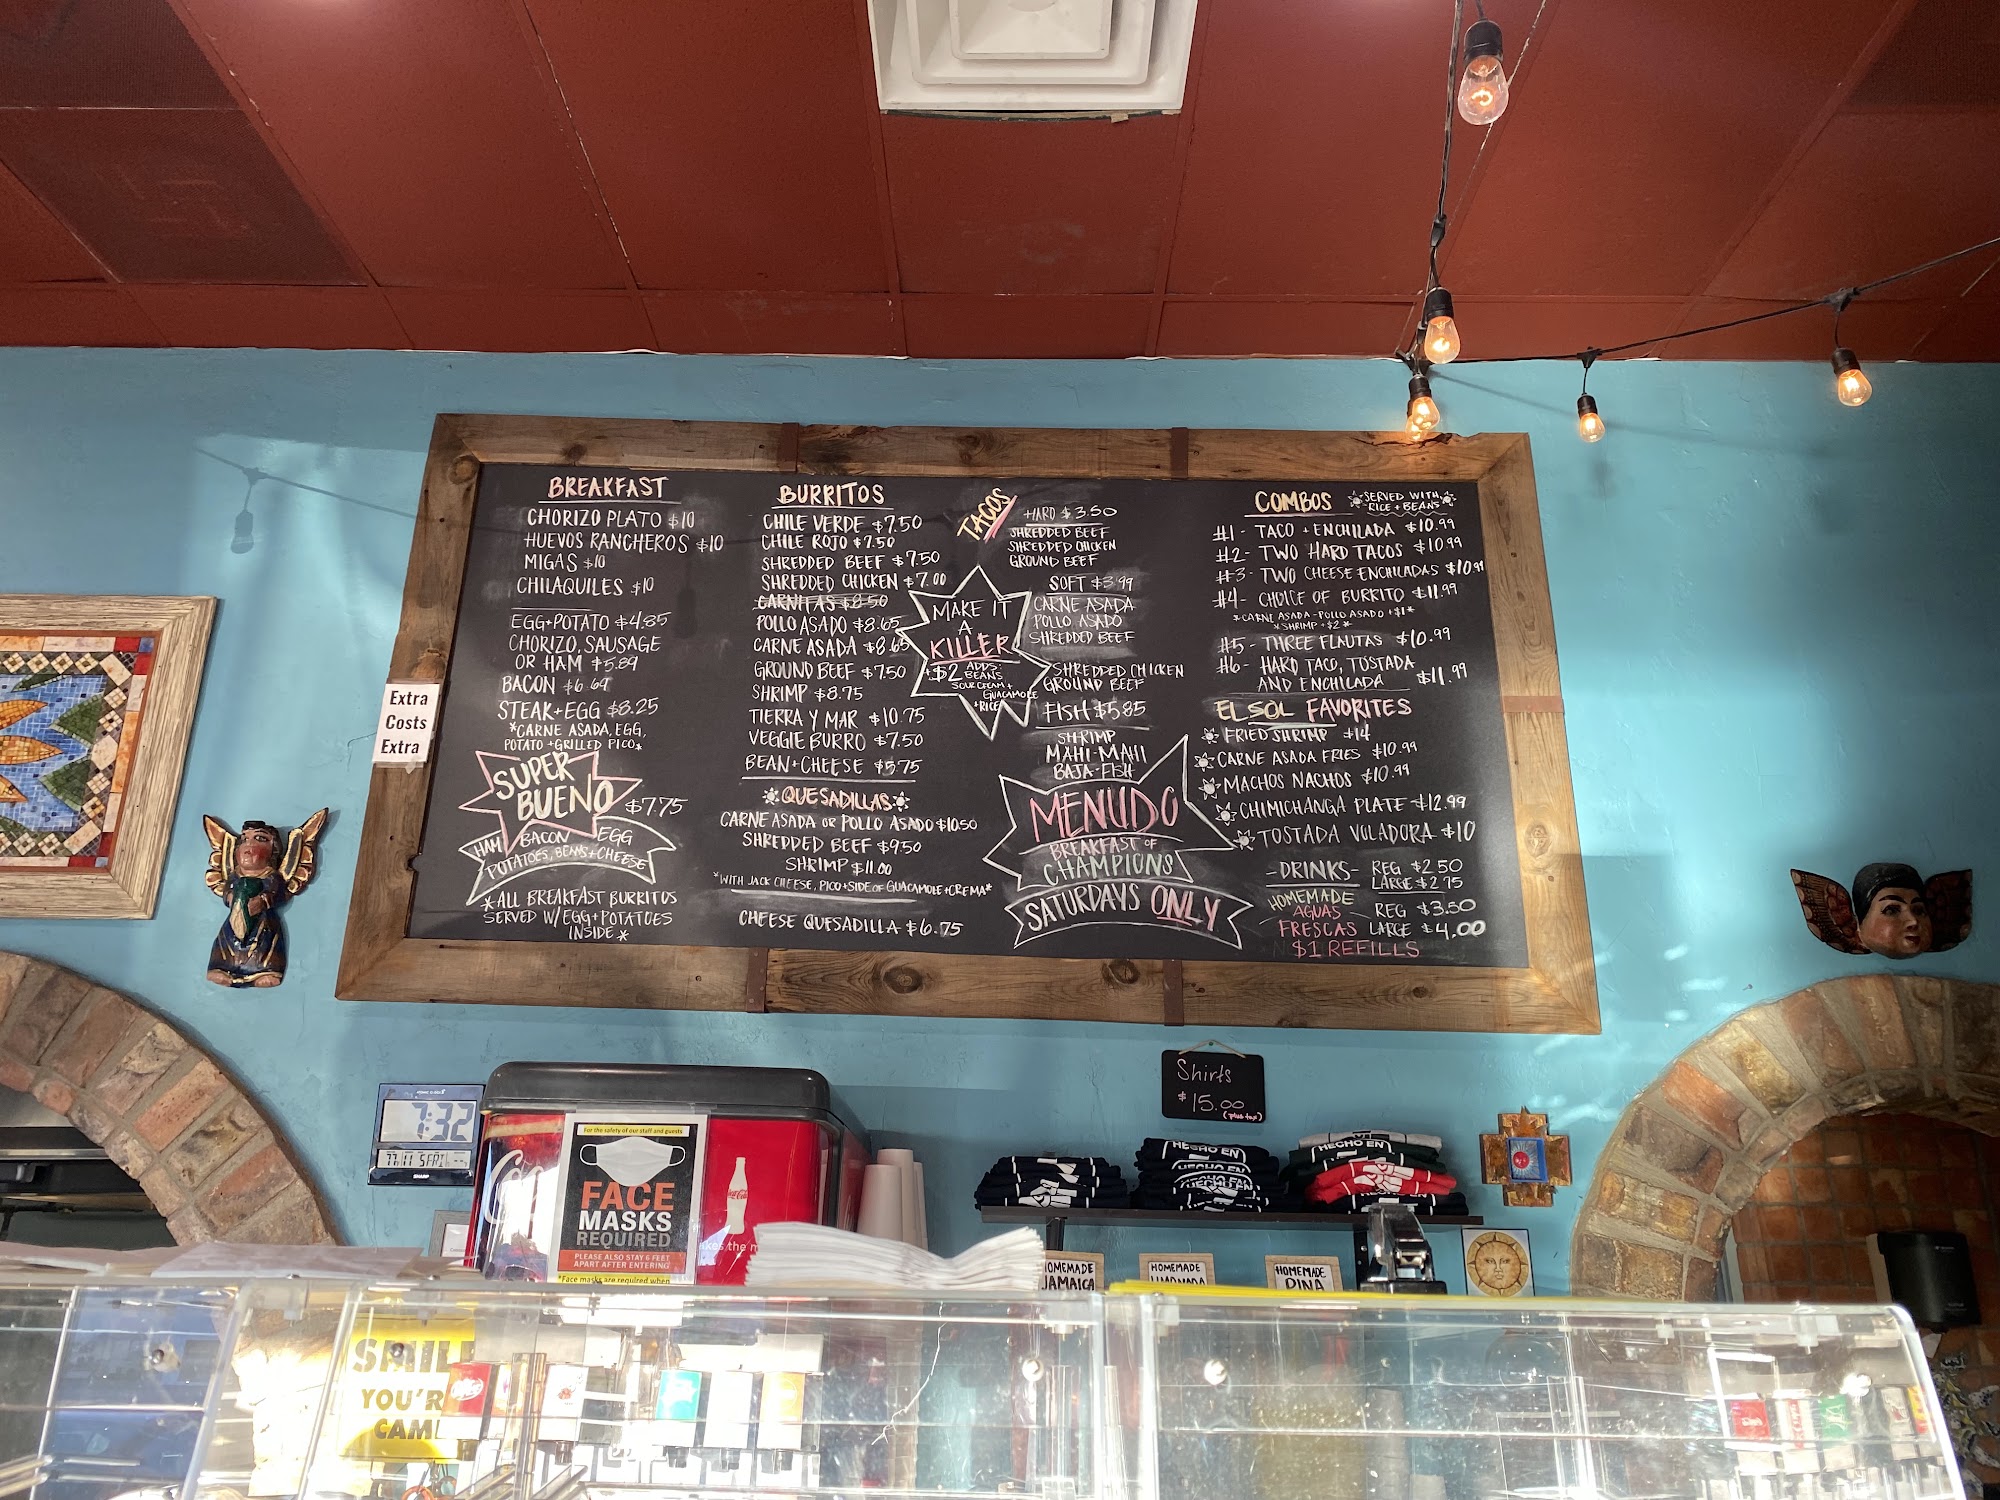 BREAKFAST
CHORIZO PLATO $10
HUEVOS RANCHEROS $10
MIGAS $10
CHILAQUILES $10
EGG+POTATO $4.85
CHORIZO, SAUSAGE
OR HAM $5.89
BACON $6.69
STEAK+EGG $8.25
*CARNE ASADA, EGG,
POTATO+GRILLED PICO*
SUPER
BUENO $7.75
HAM BACON EGG
POTATOES, BEANS+CHEESE
*ALL BREAKFAST BURRITOS
SERVED W/EGG+POTATOES
INSIDE*
BURRITOS
CHILE VERDE $7.50
CHILE ROJO $7.50
SHREDDED BEEF $7.50
SHREDDED CHICKEN $7.00
CARNITAS $8.50
POLLO ASADO $8.65
CARNE ASADA $8.65
GROUND BEEF $7.50
SHRIMP $8.75
TIERRA Y MAR $10.75
VEGGIE BURRO $7.50
BEAN+CHEESE $5.75
QUESADILLAS
CARNE ASADA OR POLLO ASADO $10.50
SHREDDED BEEF $9.50
SHRIMP $11.00
*WITH JACK CHEESE, PICO+SIDE OF GUACAMOLE+CREMA*
CHEESE QUESADILLA $6.75
TACOS
HARD $3.50
SHREDDED BEEF
SHREDDED CHICKEN
GROUND BEEF
SOFT $3.99
CARNE ASADA
POLLO ASADO
SHREDDED BEEF
SHREDDED CHICKEN
GROUND BEEF
FISH $5.85
SHRIMP
MAHI-MAHI
BAJA-FISH
MAKE IT
A
KILLER
+$2 ADDS:
BEANS
SOUR CREAM+
GUACAMOLE
+RICE
MENUDO
BREAKFAST OF
CHAMPIONS
SATURDAYS ONLY
COMBOS
SERVED WITH
RICE + BEANS
#1 - TACO + ENCHILADA $10.99
#2 - TWO HARD TACOS $10.99
#3 - TWO CHEESE ENCHILADAS $10.99
#4 - CHOICE OF BURRITO $11.99
*CARNE ASADA-POLLO ASADO +$1*
*SHRIMP +$2*
#5 - THREE FLAUTAS $10.99
#6 - HARD TACO, TOSTADA
AND ENCHILADA $11.99
EL SOL FAVORITES
FRIED SHRIMP $14
CARNE ASADA FRIES $10.99
MACHOS NACHOS $10.99
CHIMICHANGA PLATE $12.99
TOSTADA VOLADORA $10
-DRINKS- REG $2.50
LARGE $2.75
HOMEMADE
AGUAS
FRESCAS
REG $3.50
LARGE $4.00
$1 REFILLS
Extra
Costs
Extra
Shirts
$15.00
(plus tax)
7:32
SHARP
For the safety of our staff and guests
FACE
MASKS
REQUIRED
PLEASE ALSO STAY 6 FEET
APART AFTER ENTERING
*Face masks are required when
Coca-Cola
HECHO EN
HECHO EN
HECHO EN
HECHO EN
HOMEMADE
JAMAICA
HOMEMADE
LIMONADA
HOMEMADE
PINA
SMIL
YOU'R
CAM